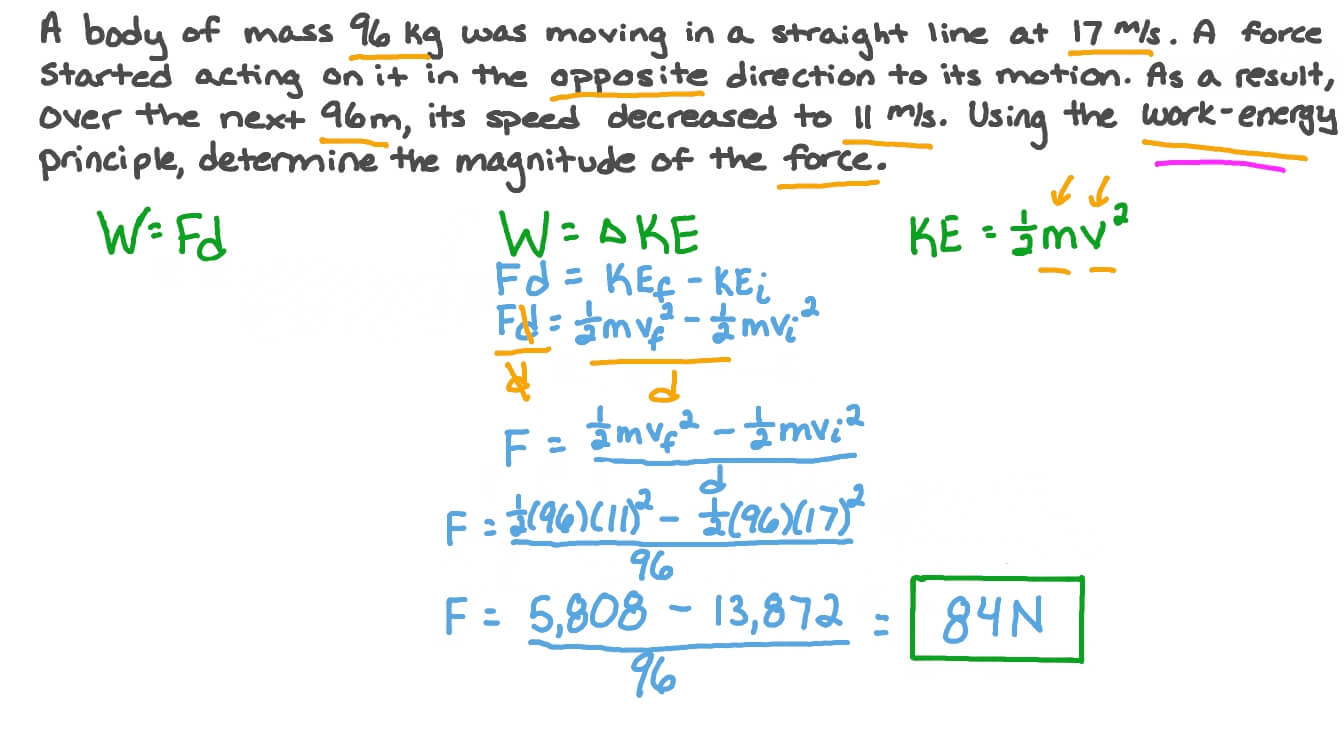 A body of mass 96 kg was moving in a straight line at 17 m/s. A force
started acting on it in the opposite direction to its motion. As a result,
over the next 96m, its speed decreased to 11 m/s. Using the work-energy
principle, determine the magnitude of the force.
W=Fd W = ΔKE KE = ½mv²
Fd = KE_f - KE_i
Fd = ½mv_f² - ½mv_i²
d d
F = ½mv_f² - ½mv_i²
d
F = ½(96)(11)² - ½(96)(17)²
96
F = 5,808 - 13,872 = 84N
96